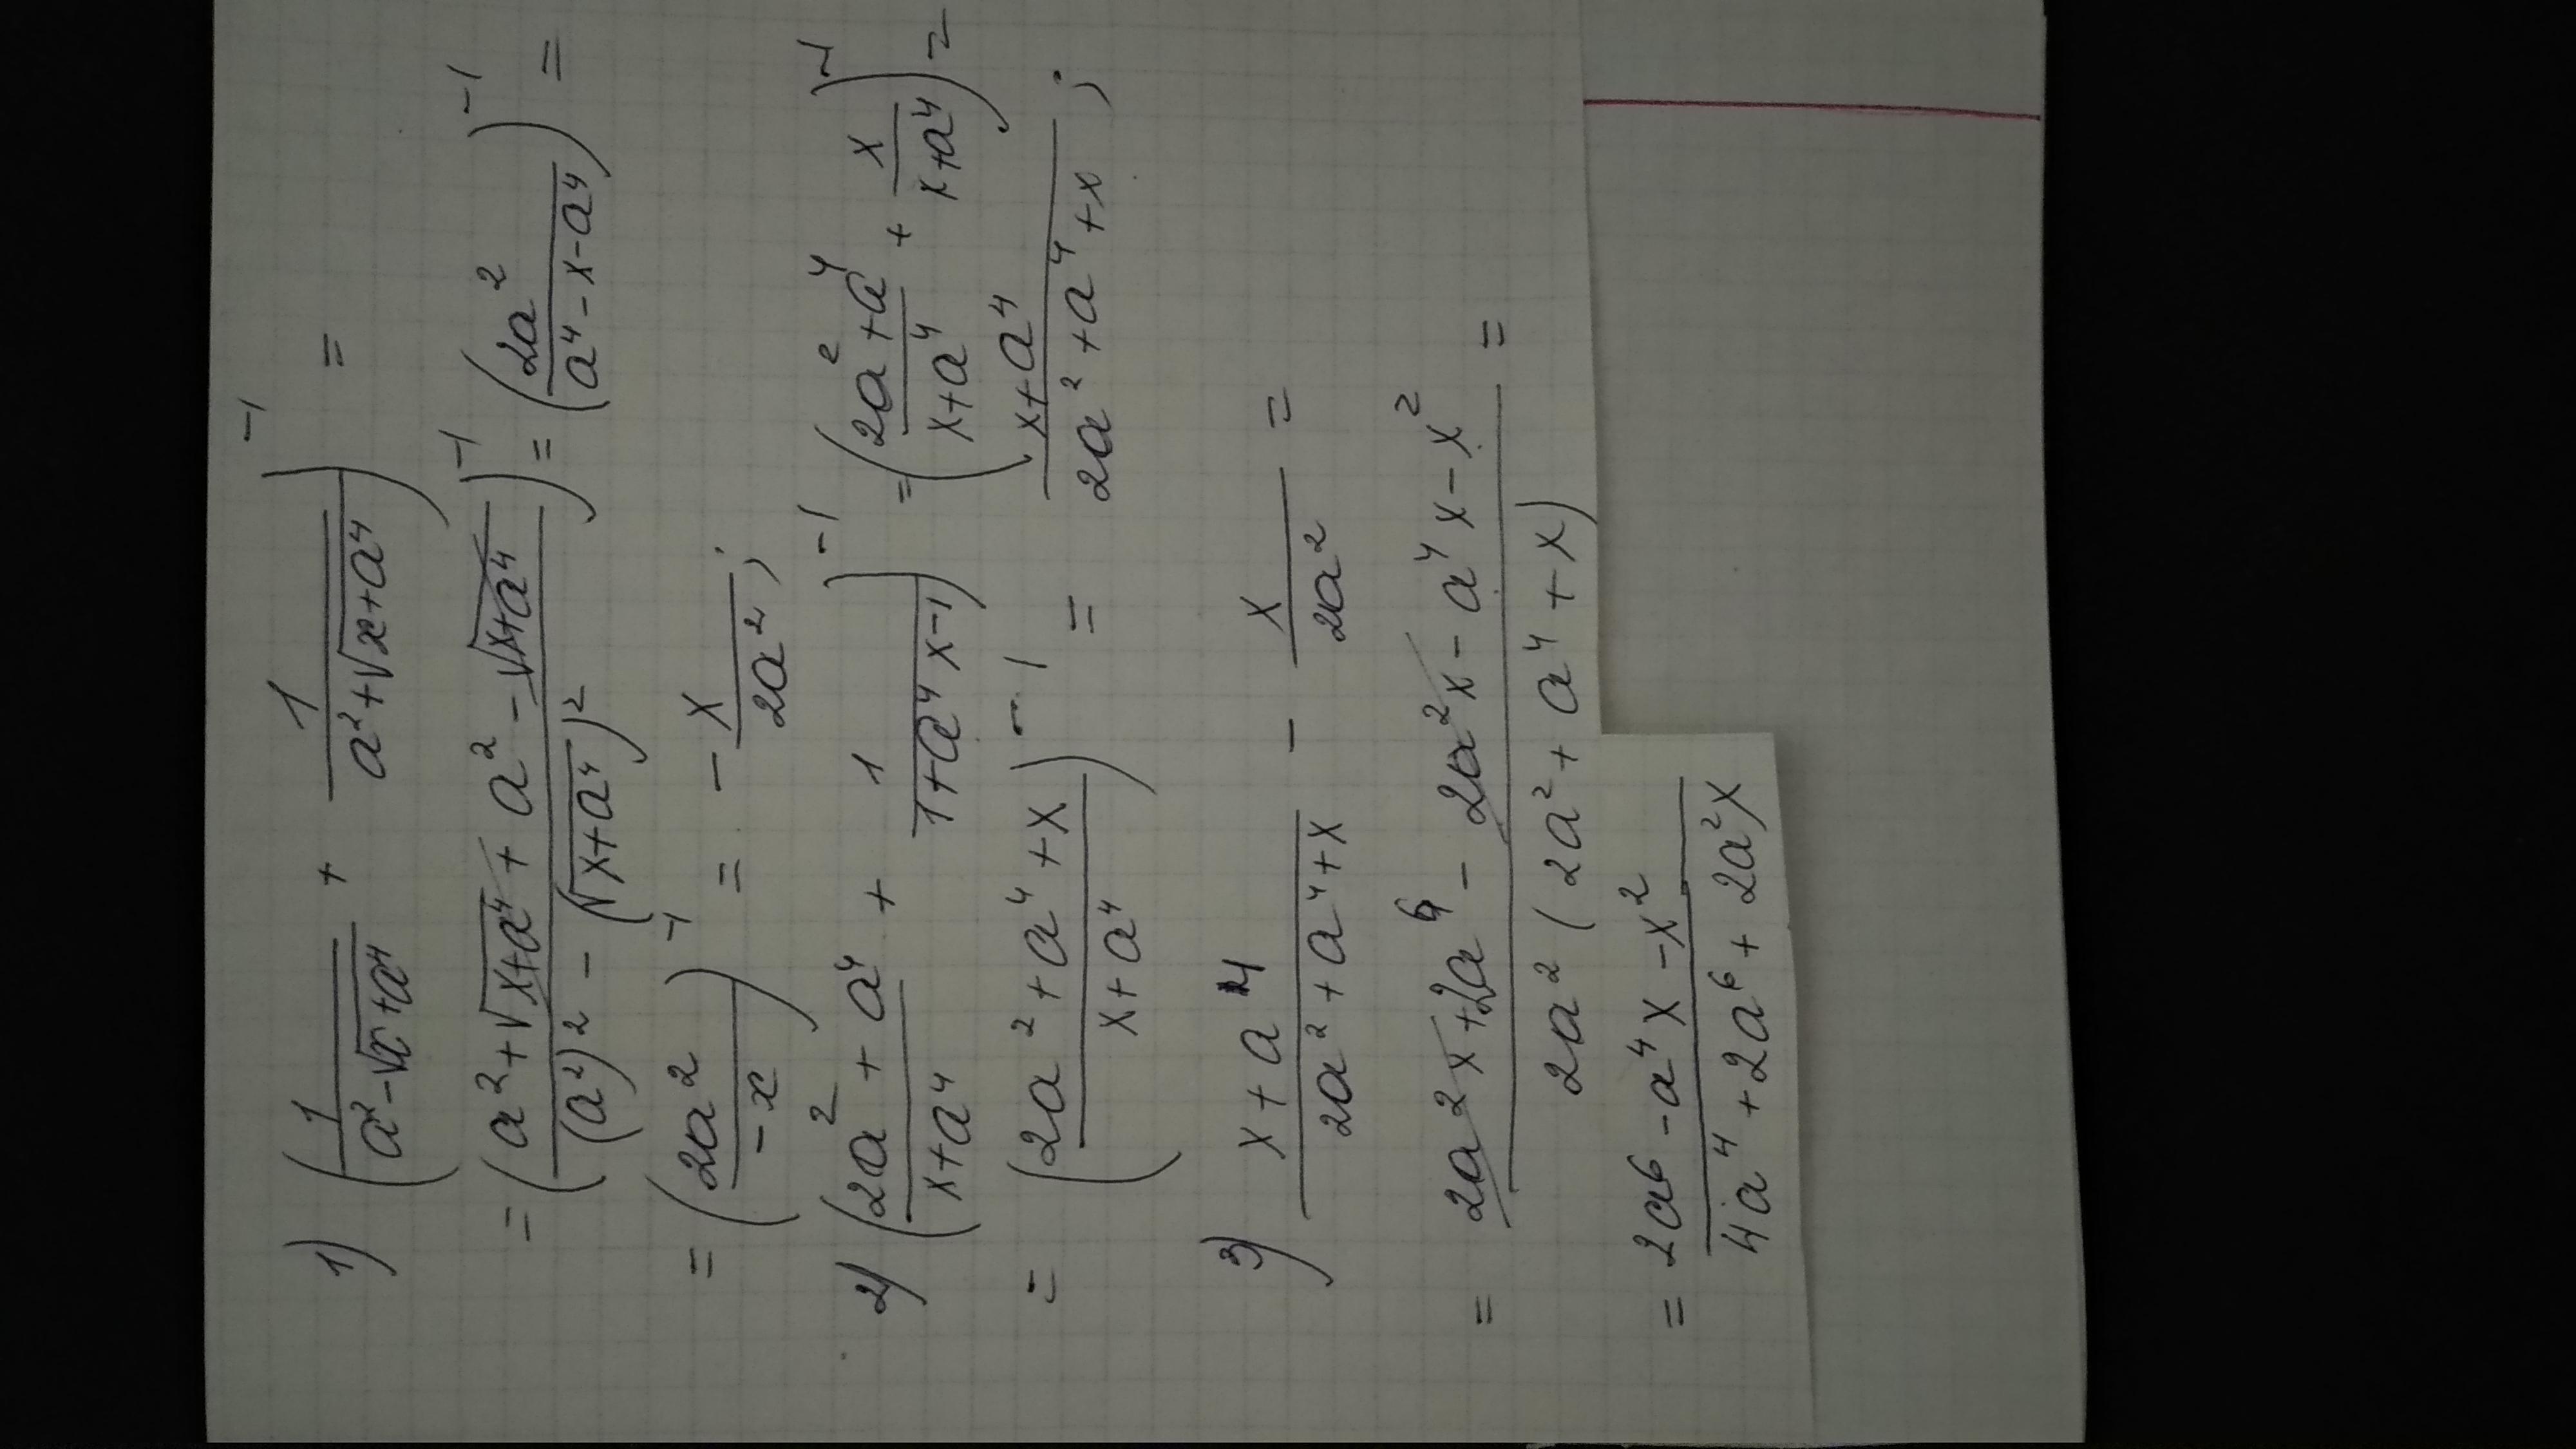 1) (1/(a² - √(x + a⁴)) + 1/(a² + √(x + a⁴)))⁻¹ =
= ((a² + √(x + a⁴) + a² - √(x + a⁴))/((a²)² - (√(x + a⁴))²))⁻¹ = (2a²/(a⁴ - x - a⁴))⁻¹ =
= (2a²/(-x))⁻¹ = - x/(2a²);
2) ((2a² + a⁴)/(x + a⁴) + 1/(1 + a⁴x⁻¹))⁻¹ = ((2a² + a⁴)/(x + a⁴) + x/(x + a⁴))⁻¹ =
= ((2a² + a⁴ + x)/(x + a⁴))⁻¹ = (x + a⁴)/(2a² + a⁴ + x);
3) (x + a⁴)/(2a² + a⁴ + x) - x/(2a²) =
= (2a²x + 2a⁶ - 2a²x - a⁴x - x²)/(2a²(2a² + a⁴ + x)) =
= (2a⁶ - a⁴x - x²)/(4a⁴ + 2a⁶ + 2a²x)